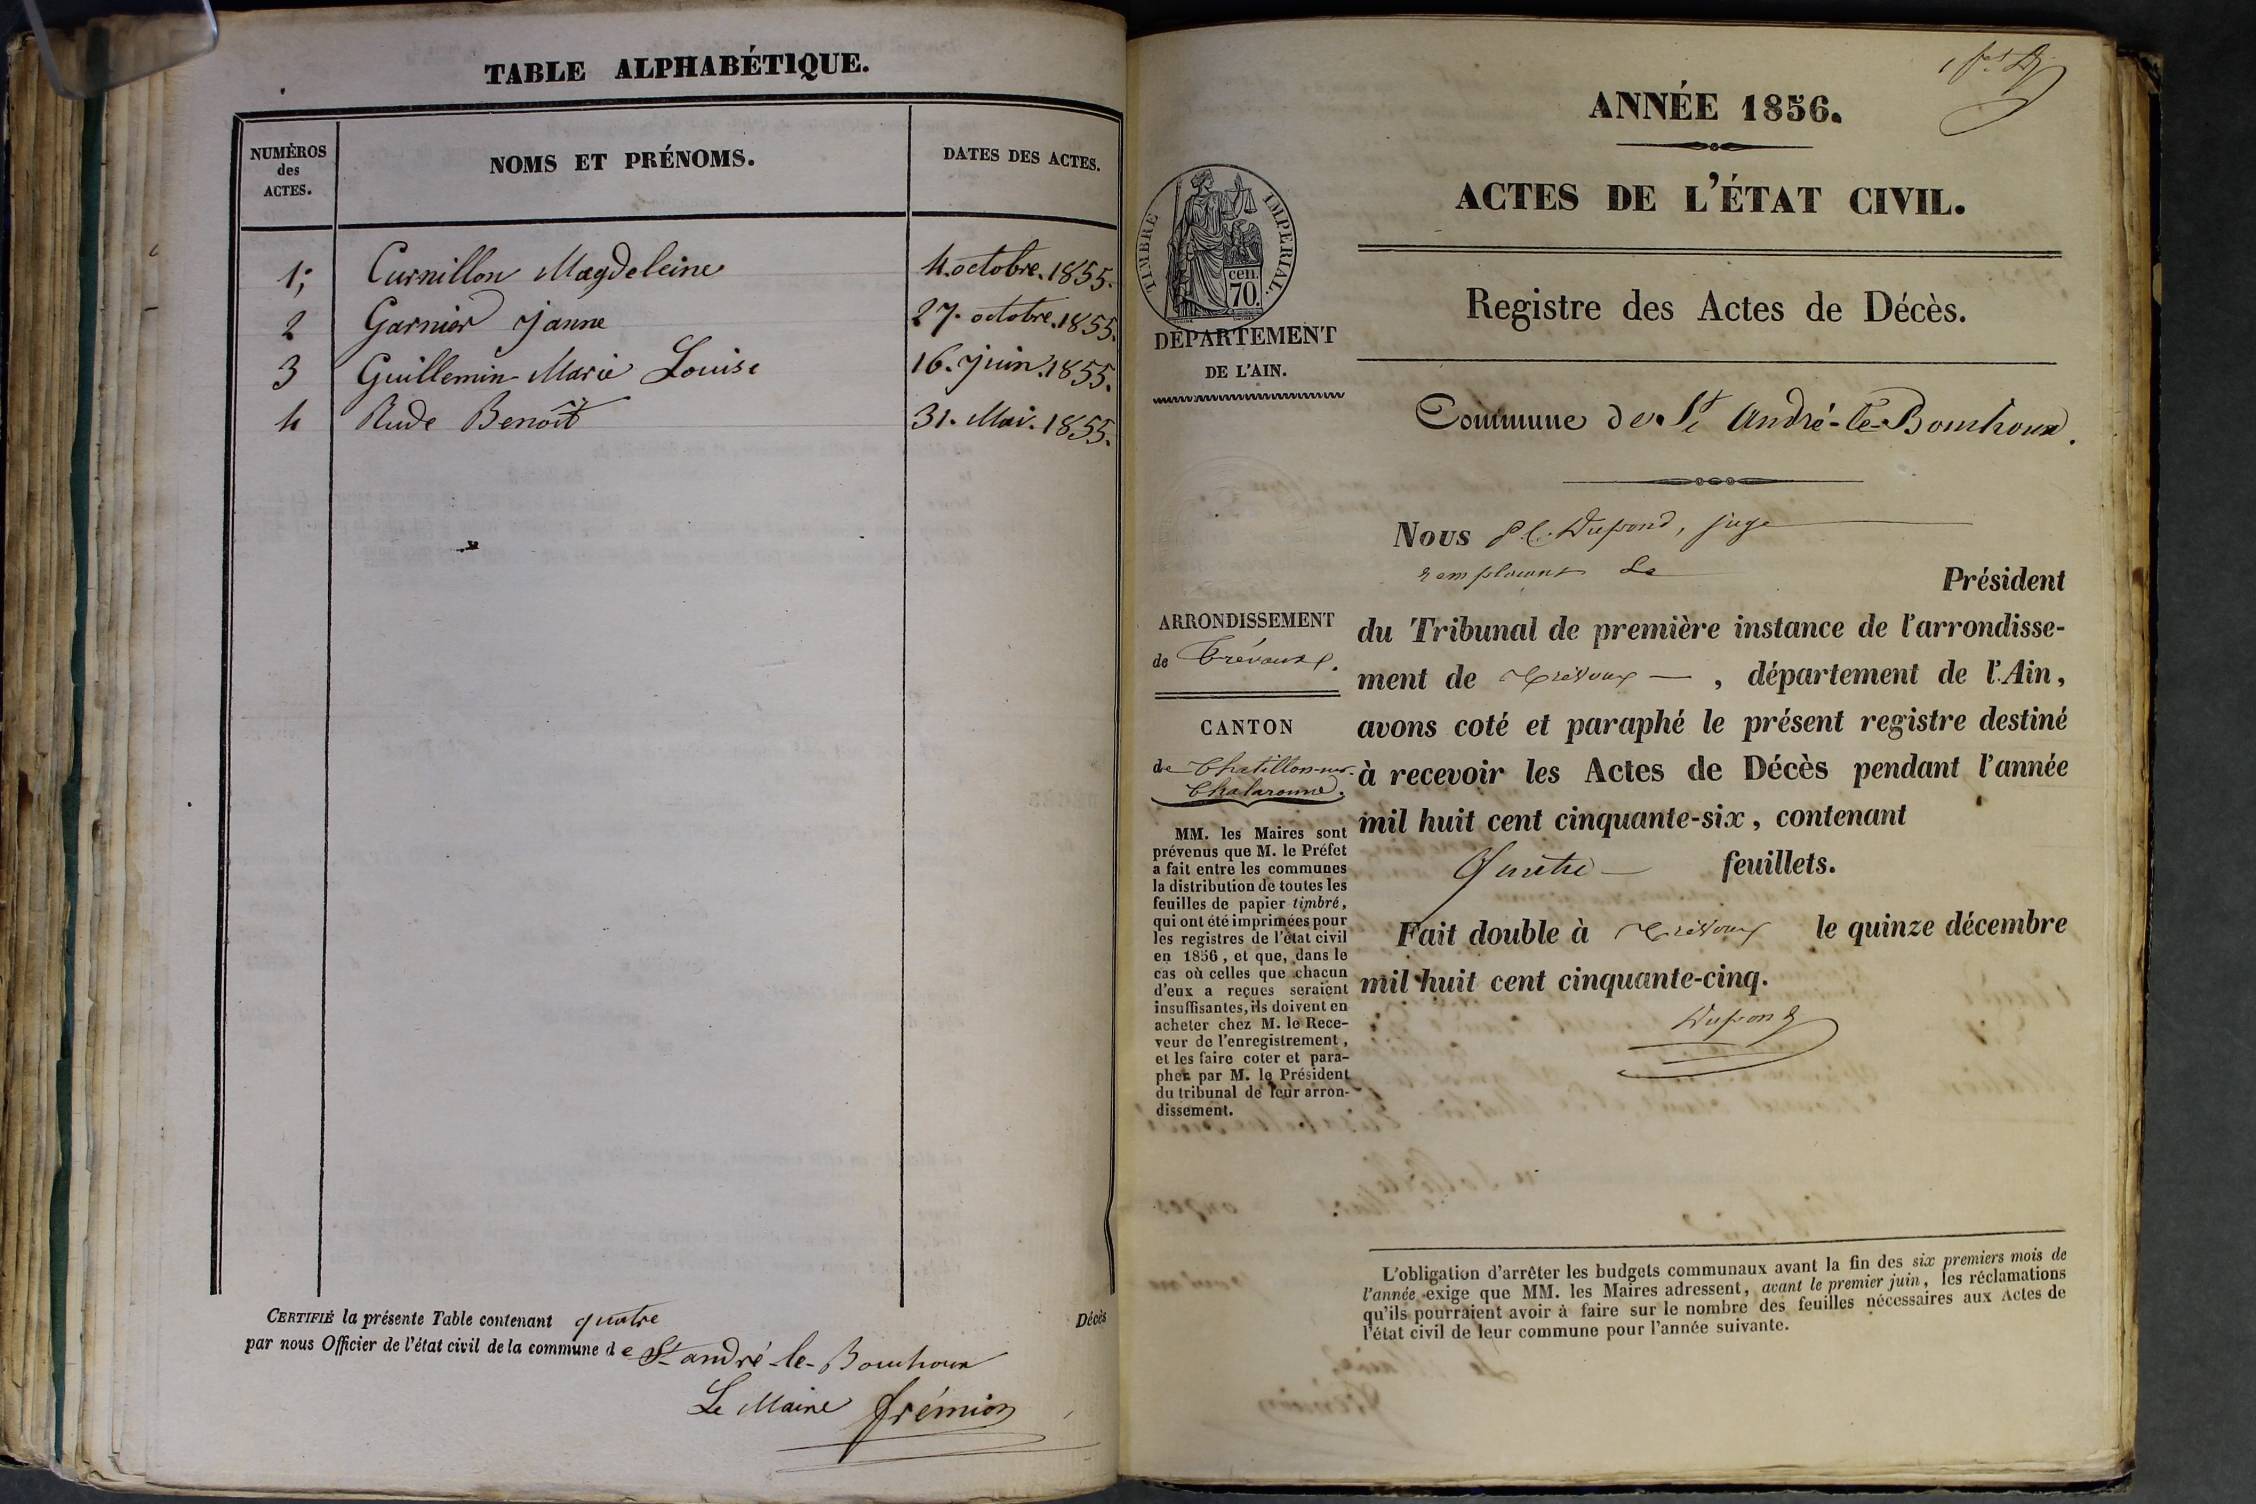 TABLE ALPHABÉTIQUE.
NUMÉROS
des
ACTES.
NOMS ET PRÉNOMS.
DATES DES ACTES.
1; Curnillon Magdeleine 4. octobre. 1855.
2 Garnier Janne 27. octobre. 1855.
3 Guillemin Marie Louise 16. juin. 1855.
4 Rude Benoît 31. Mai. 1855.
CERTIFIÉ la présente Table contenant quatre Décès
par nous Officier de l'état civil de la commune de St andré-le-Bouchoux
Le Maire frémion
ANNÉE 1856.
ACTES DE L'ÉTAT CIVIL.
TIMBRE IMPERIAL.
cen.
70.
DÉPARTEMENT
DE L'AIN.
Registre des Actes de Décès.
Commune de St André-le-Bouchoux.
Nous P. C. Dupond, juge
remplaçant Le
Président
du Tribunal de première instance de l'arrondisse-
ment de Trévoux — , département de l'Ain,
avons coté et paraphé le présent registre destiné
à recevoir les Actes de Décès pendant l'année
mil huit cent cinquante-six, contenant
Quatre — feuillets.
Fait double à Trévoux le quinze décembre
mil huit cent cinquante-cinq.
Dupond
ARRONDISSEMENT
de Trévoux.
CANTON
de Chatillon-sur-
Chalaronne.
MM. les Maires sont
prévenus que M. le Préfet
a fait entre les communes
la distribution de toutes les
feuilles de papier timbré,
qui ont été imprimées pour
les registres de l'état civil
en 1856, et que, dans le
cas où celles que chacun
d'eux a reçues seraient
insuffisantes, ils doivent en
acheter chez M. le Rece-
veur de l'enregistrement,
et les faire coter et para-
pher par M. le Président
du tribunal de leur arron-
dissement.
L'obligation d'arrêter les budgets communaux avant la fin des six premiers mois de
l'année exige que MM. les Maires adressent, avant le premier juin, les réclamations
qu'ils pourraient avoir à faire sur le nombre des feuilles nécessaires aux Actes de
l'état civil de leur commune pour l'année suivante.